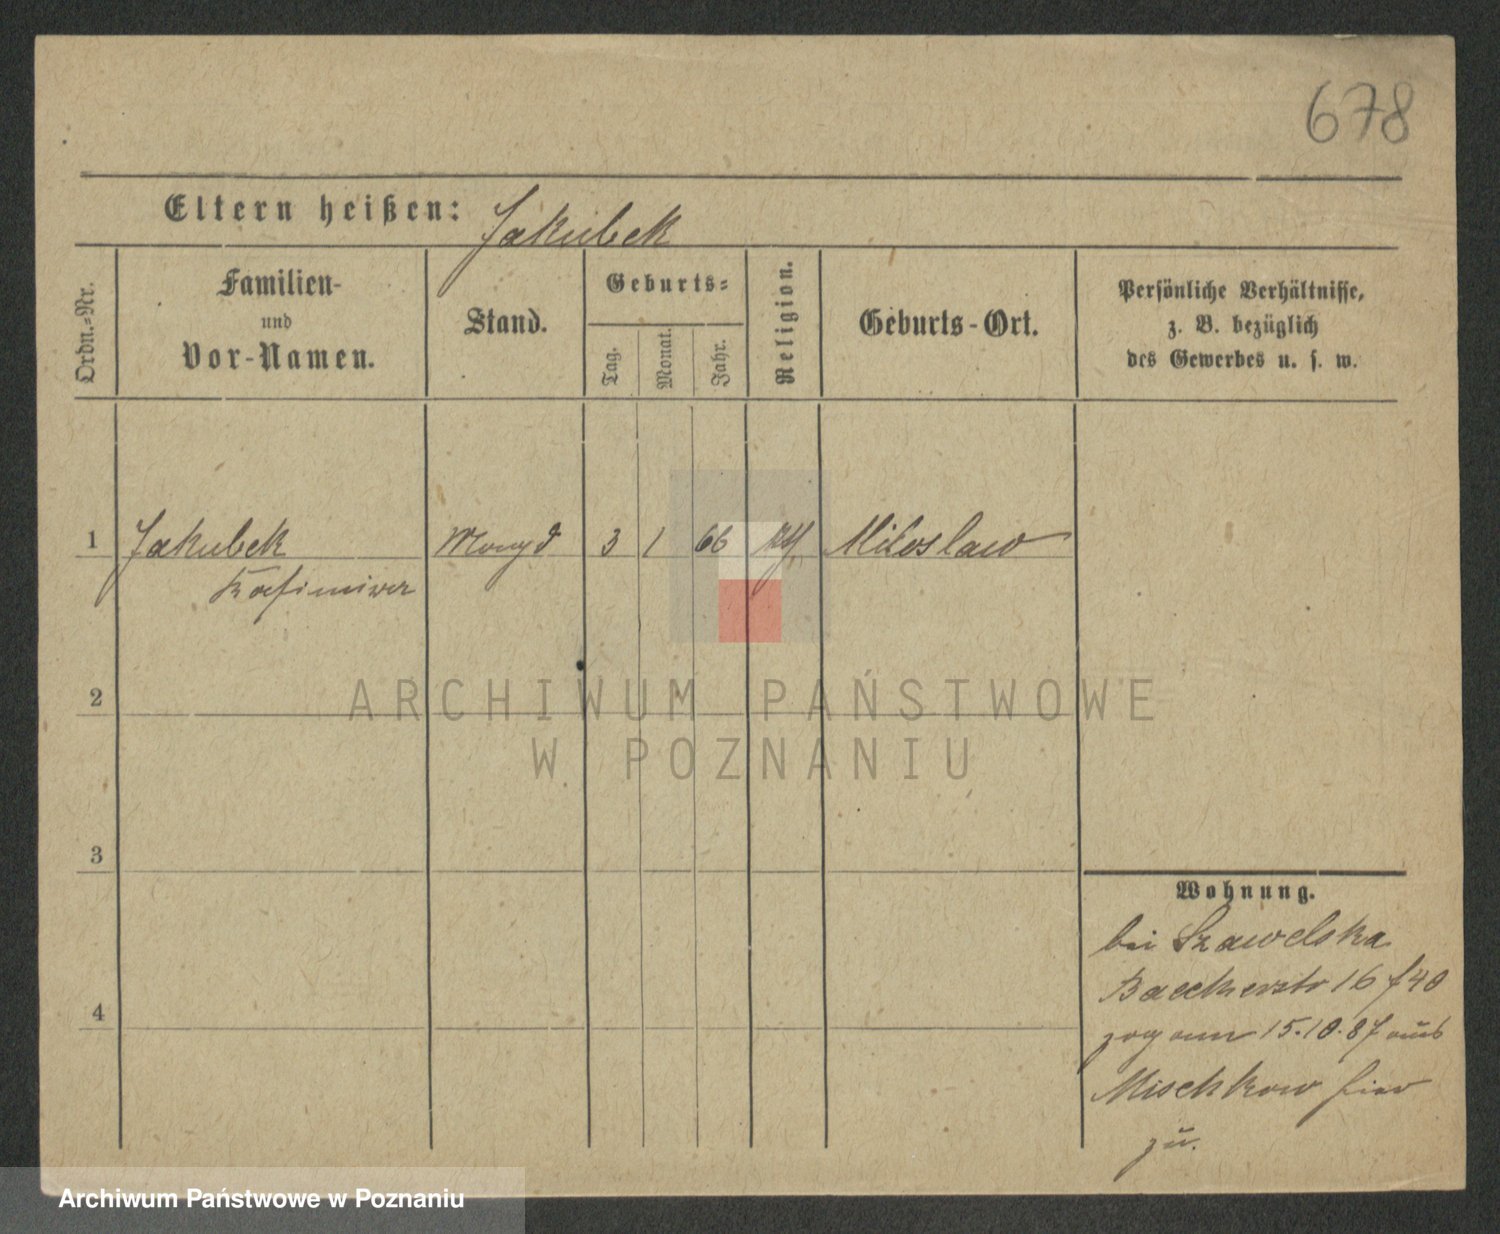 678
Eltern heißen: Jakubek
Ordn.-Nr.
Familien-
und
Vor-Namen.
Stand.
Geburts-
Tag.
Monat.
Jahr.
Religion.
Geburts-Ort.
Persönliche Verhältnisse,
z. B. bezüglich
des Gewerbes u. s. w.
1 Jakubek 3 1 66 Miloslaw
Kasimira
2
3
4
Wohnung.
bei Szawelska
Baeckerstr 16
zog am 15.10.87 aus
Mischkow hier
zu.
ARCHIWUM PAŃSTWOWE
W POZNANIU
Archiwum Państwowe w Poznaniu